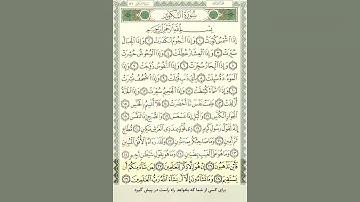 سُورَةُ التَّكْوِيرِ
بِسْمِ اللَّهِ الرَّحْمَٰنِ الرَّحِيمِ
إِذَا الشَّمْسُ كُوِّرَتْ ﴿١﴾ وَإِذَا النُّجُومُ انْكَدَرَتْ ﴿٢﴾ وَإِذَا الْجِبَالُ
سُيِّرَتْ ﴿٣﴾ وَإِذَا الْعِشَارُ عُطِّلَتْ ﴿٤﴾ وَإِذَا الْوُحُوشُ حُشِرَتْ ﴿٥﴾
وَإِذَا الْبِحَارُ سُجِّرَتْ ﴿٦﴾ وَإِذَا النُّفُوسُ زُوِّجَتْ ﴿٧﴾ وَإِذَا
الْمَوْءُودَةُ سُئِلَتْ ﴿٨﴾ بِأَيِّ ذَنْبٍ قُتِلَتْ ﴿٩﴾ وَإِذَا الصُّحُفُ نُشِرَتْ ﴿١٠﴾
وَإِذَا السَّمَاءُ كُشِطَتْ ﴿١١﴾ وَإِذَا الْجَحِيمُ سُعِّرَتْ ﴿١٢﴾ وَإِذَا الْجَنَّةُ أُزْلِفَتْ
﴿١٣﴾ عَلِمَتْ نَفْسٌ مَا أَحْضَرَتْ ﴿١٤﴾ فَلَا أُقْسِمُ بِالْخُنَّسِ ﴿١٥﴾
الْجَوَارِ الْكُنَّسِ ﴿١٦﴾ وَاللَّيْلِ إِذَا عَسْعَسَ ﴿١٧﴾ وَالصُّبْحِ إِذَا تَنَفَّسَ
﴿١٨﴾ إِنَّهُ لَقَوْلُ رَسُولٍ كَرِيمٍ ﴿١٩﴾ ذِي قُوَّةٍ عِنْدَ ذِي الْعَرْشِ مَكِينٍ ﴿٢٠﴾
مُطَاعٍ ثَمَّ أَمِينٍ ﴿٢١﴾ وَمَا صَاحِبُكُمْ بِمَجْنُونٍ ﴿٢٢﴾ وَلَقَدْ رَآهُ بِالْأُفُقِ الْمُبِينِ
﴿٢٣﴾ وَمَا هُوَ عَلَى الْغَيْبِ بِضَنِينٍ ﴿٢٤﴾ وَمَا هُوَ بِقَوْلِ شَيْطَانٍ رَجِيمٍ
﴿٢٥﴾ فَأَيْنَ تَذْهَبُونَ ﴿٢٦﴾ إِنْ هُوَ إِلَّا ذِكْرٌ لِلْعَالَمِينَ ﴿٢٧﴾ لِمَنْ شَاءَ مِنْكُمْ أَنْ
يَسْتَقِيمَ ﴿٢٨﴾ وَمَا تَشَاءُونَ إِلَّا أَنْ يَشَاءَ اللَّهُ رَبُّ الْعَالَمِينَ ﴿٢٩﴾
برای کسی از شما که بخواهد راه راست در پیش گیرد